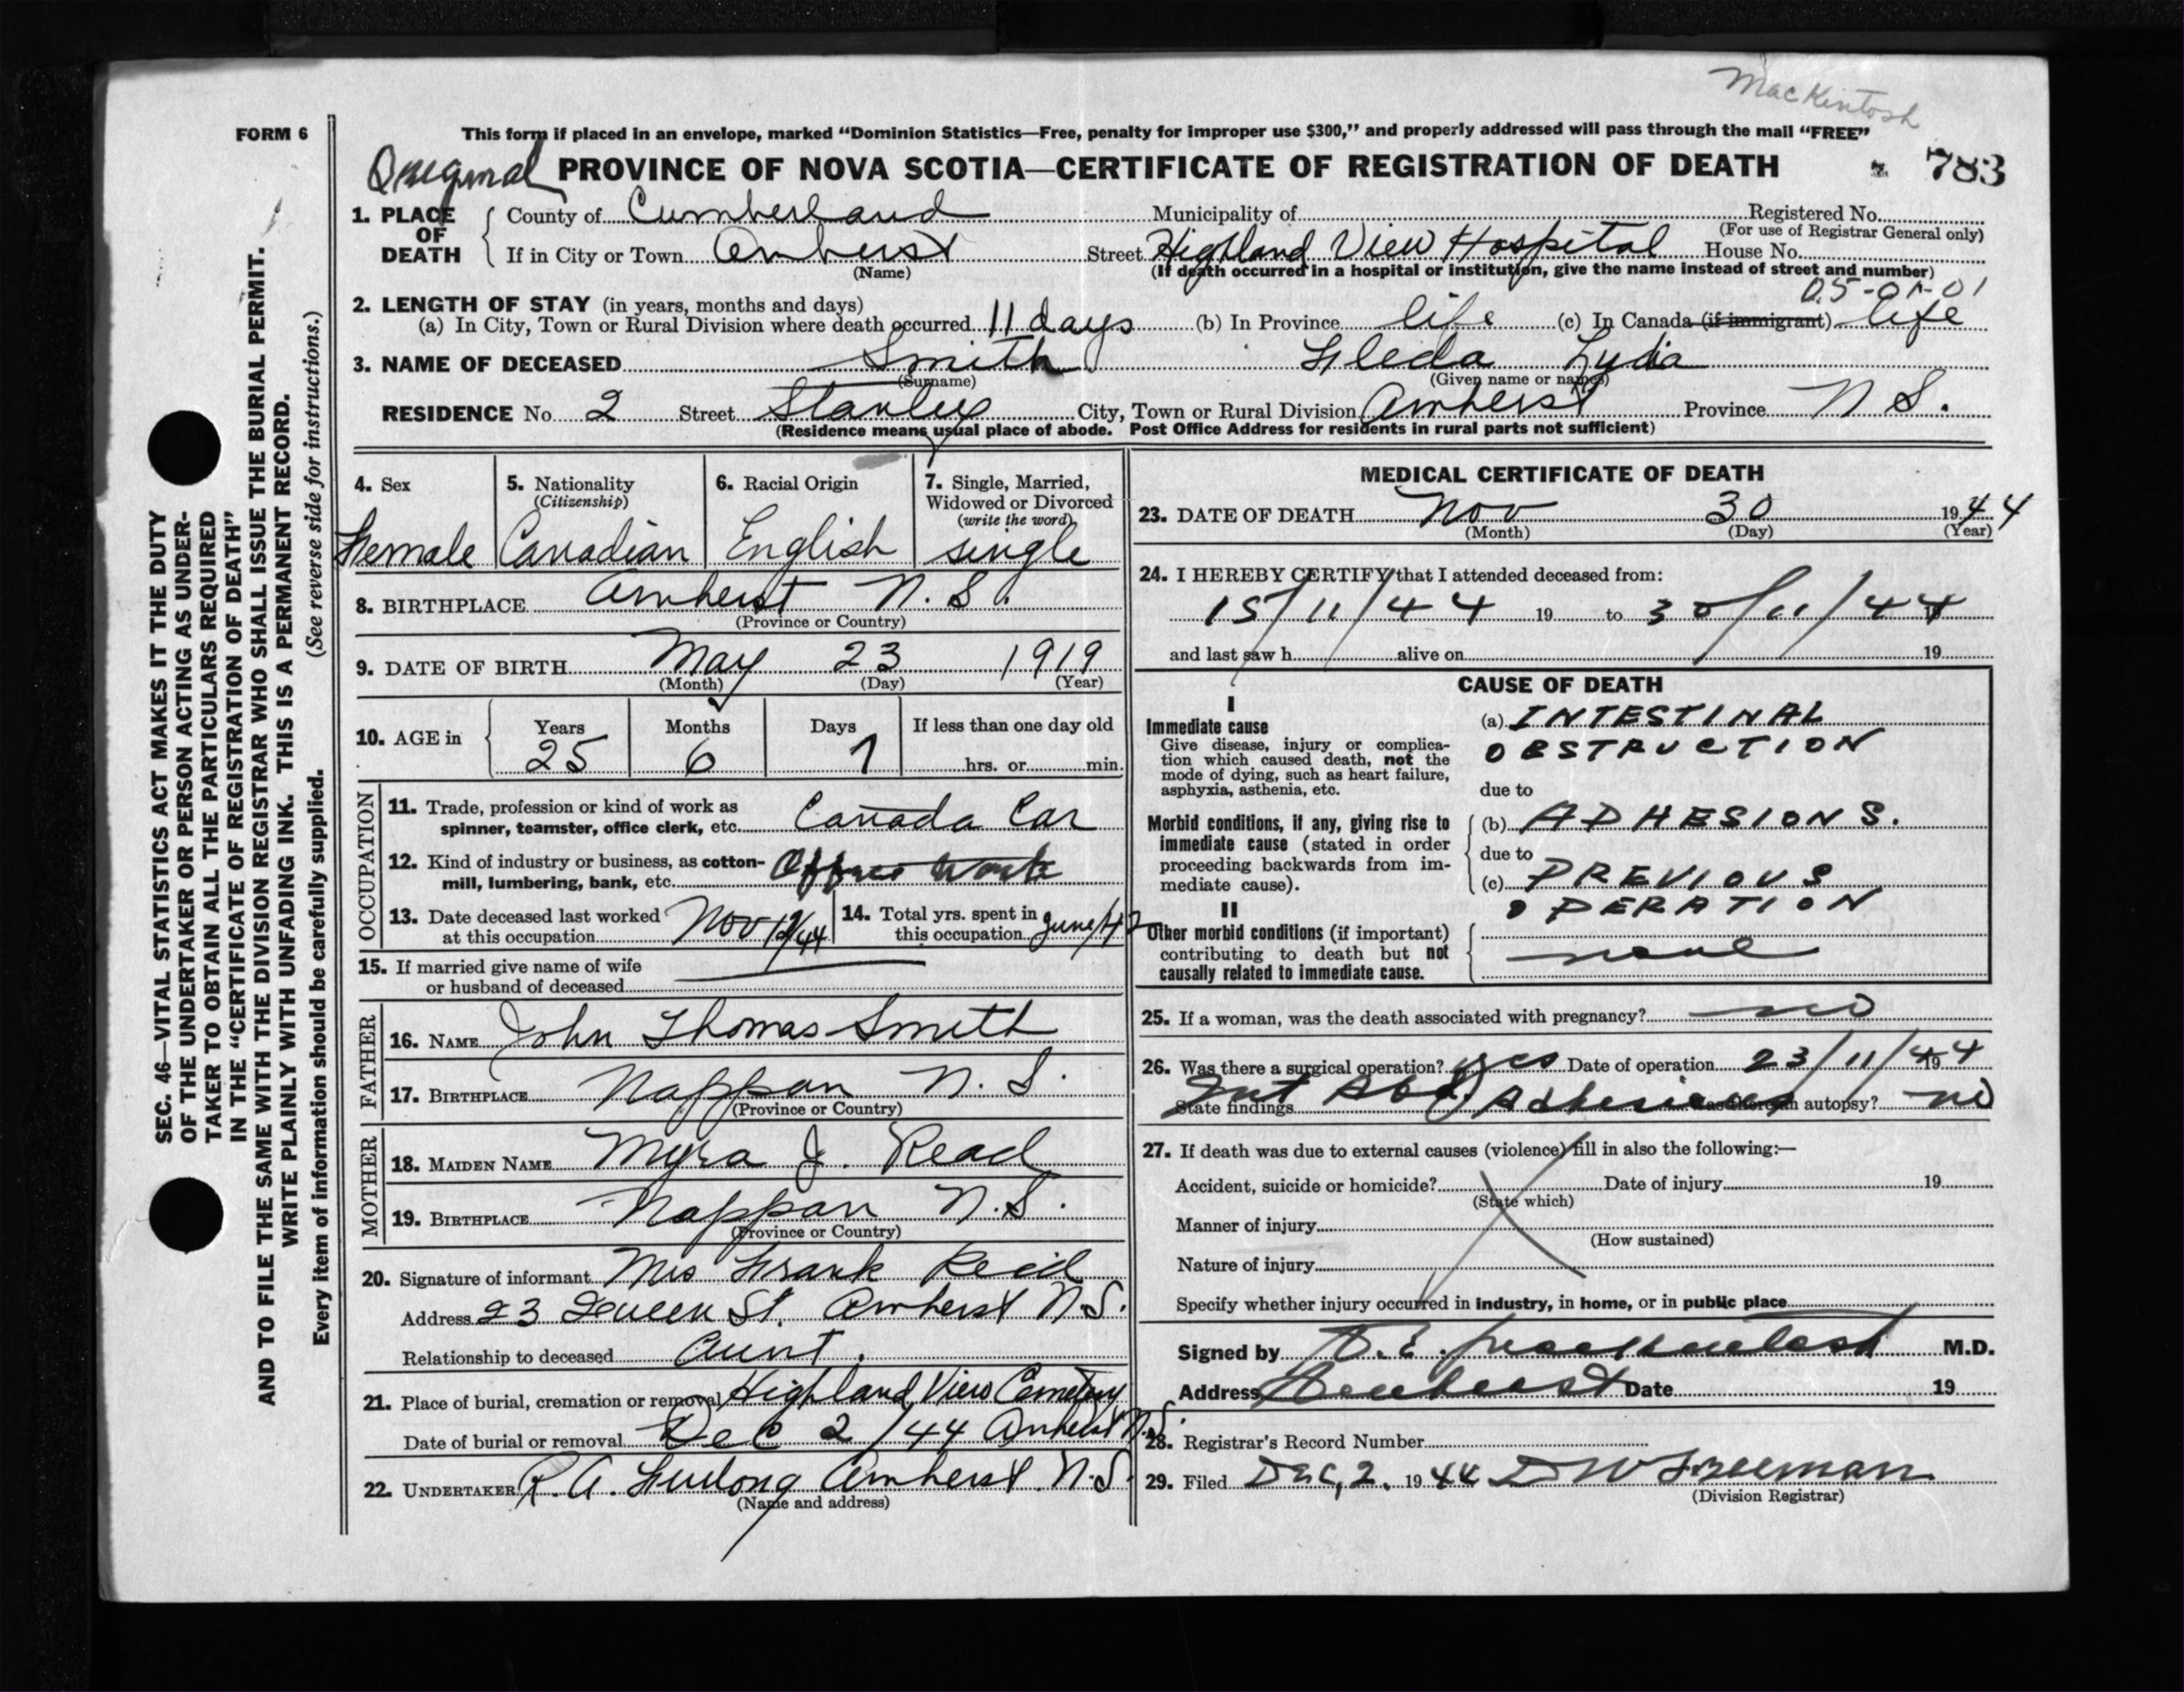 MacKintosh
FORM 6
This form if placed in an envelope, marked “Dominion Statistics—Free, penalty for improper use $300,” and properly addressed will pass through the mail “FREE”
Original PROVINCE OF NOVA SCOTIA—CERTIFICATE OF REGISTRATION OF DEATH 783
1. PLACE OF DEATH County of Cumberland Municipality of Registered No.
(For use of Registrar General only)
If in City or Town Amherst Street Highland View Hospital House No.
(Name) (If death occurred in a hospital or institution, give the name instead of street and number)
2. LENGTH OF STAY (in years, months and days)
(a) In City, Town or Rural Division where death occurred 11 days (b) In Province life (c) In Canada (if immigrant) life
3. NAME OF DECEASED Smith Fleda Lydia
(Surname) (Given name or names)
RESIDENCE No. 2 Street Stanley City, Town or Rural Division Amherst Province N S.
(Residence means usual place of abode. Post Office Address for residents in rural parts not sufficient)
4. Sex
Female
5. Nationality
(Citizenship)
Canadian
6. Racial Origin
English
7. Single, Married,
Widowed or Divorced
(write the word)
single
8. BIRTHPLACE Amherst N. S.
(Province or Country)
9. DATE OF BIRTH May 23 1919
(Month) (Day) (Year)
10. AGE in Years Months Days If less than one day old
25 6 7 hrs. or min.
OCCUPATION
11. Trade, profession or kind of work as
spinner, teamster, office clerk, etc. Canada Car
12. Kind of industry or business, as cotton-
mill, lumbering, bank, etc. Office Work
13. Date deceased last worked
at this occupation Nov /44
14. Total yrs. spent in
this occupation June/42
15. If married give name of wife
or husband of deceased
FATHER
16. NAME John Thomas Smith
17. BIRTHPLACE Nappan N. S.
(Province or Country)
MOTHER
18. MAIDEN NAME Myra J. Read
19. BIRTHPLACE Nappan N. S.
(Province or Country)
20. Signature of informant Mrs Frank Reid
Address 23 Queen St. Amherst N. S.
Relationship to deceased Aunt.
21. Place of burial, cremation or removal Highland View Cemetery
Date of burial or removal Dec 2/44 Amherst N.S.
22. UNDERTAKER R. A. Furlong Amherst. N. S.
(Name and address)
MEDICAL CERTIFICATE OF DEATH
23. DATE OF DEATH Nov 30 1944
(Month) (Day) (Year)
24. I HEREBY CERTIFY that I attended deceased from:
15/11/44 19 to 30/11/44 19
and last saw h alive on 19
CAUSE OF DEATH
I
Immediate cause
Give disease, injury or complica-
tion which caused death, not the
mode of dying, such as heart failure,
asphyxia, asthenia, etc.
(a) INTESTINAL
OBSTRUCTION
due to
Morbid conditions, if any, giving rise to
immediate cause (stated in order
proceeding backwards from im-
mediate cause).
(b) ADHESIONS.
due to
(c) PREVIOUS
OPERATION
II
Other morbid conditions (if important)
contributing to death but not
causally related to immediate cause.
none
25. If a woman, was the death associated with pregnancy? no
26. Was there a surgical operation? yes Date of operation 23/11/44 19
State findings Int Abd. Adhesions Was there an autopsy? no
27. If death was due to external causes (violence) fill in also the following:—
Accident, suicide or homicide? Date of injury 19
(State which)
Manner of injury
(How sustained)
Nature of injury
Specify whether injury occurred in industry, in home, or in public place
Signed by D. E. Mackintosh M.D.
Address Amherst Date 19
28. Registrar's Record Number
29. Filed Dec, 2. 1944 D W Freeman
(Division Registrar)
SEC. 46—VITAL STATISTICS ACT MAKES IT THE DUTY
OF THE UNDERTAKER OR PERSON ACTING AS UNDER-
TAKER TO OBTAIN ALL THE PARTICULARS REQUIRED
IN THE “CERTIFICATE OF REGISTRATION OF DEATH”
AND TO FILE THE SAME WITH THE DIVISION REGISTRAR WHO SHALL ISSUE THE BURIAL PERMIT.
WRITE PLAINLY WITH UNFADING INK. THIS IS A PERMANENT RECORD.
Every item of information should be carefully supplied. (See reverse side for instructions.)